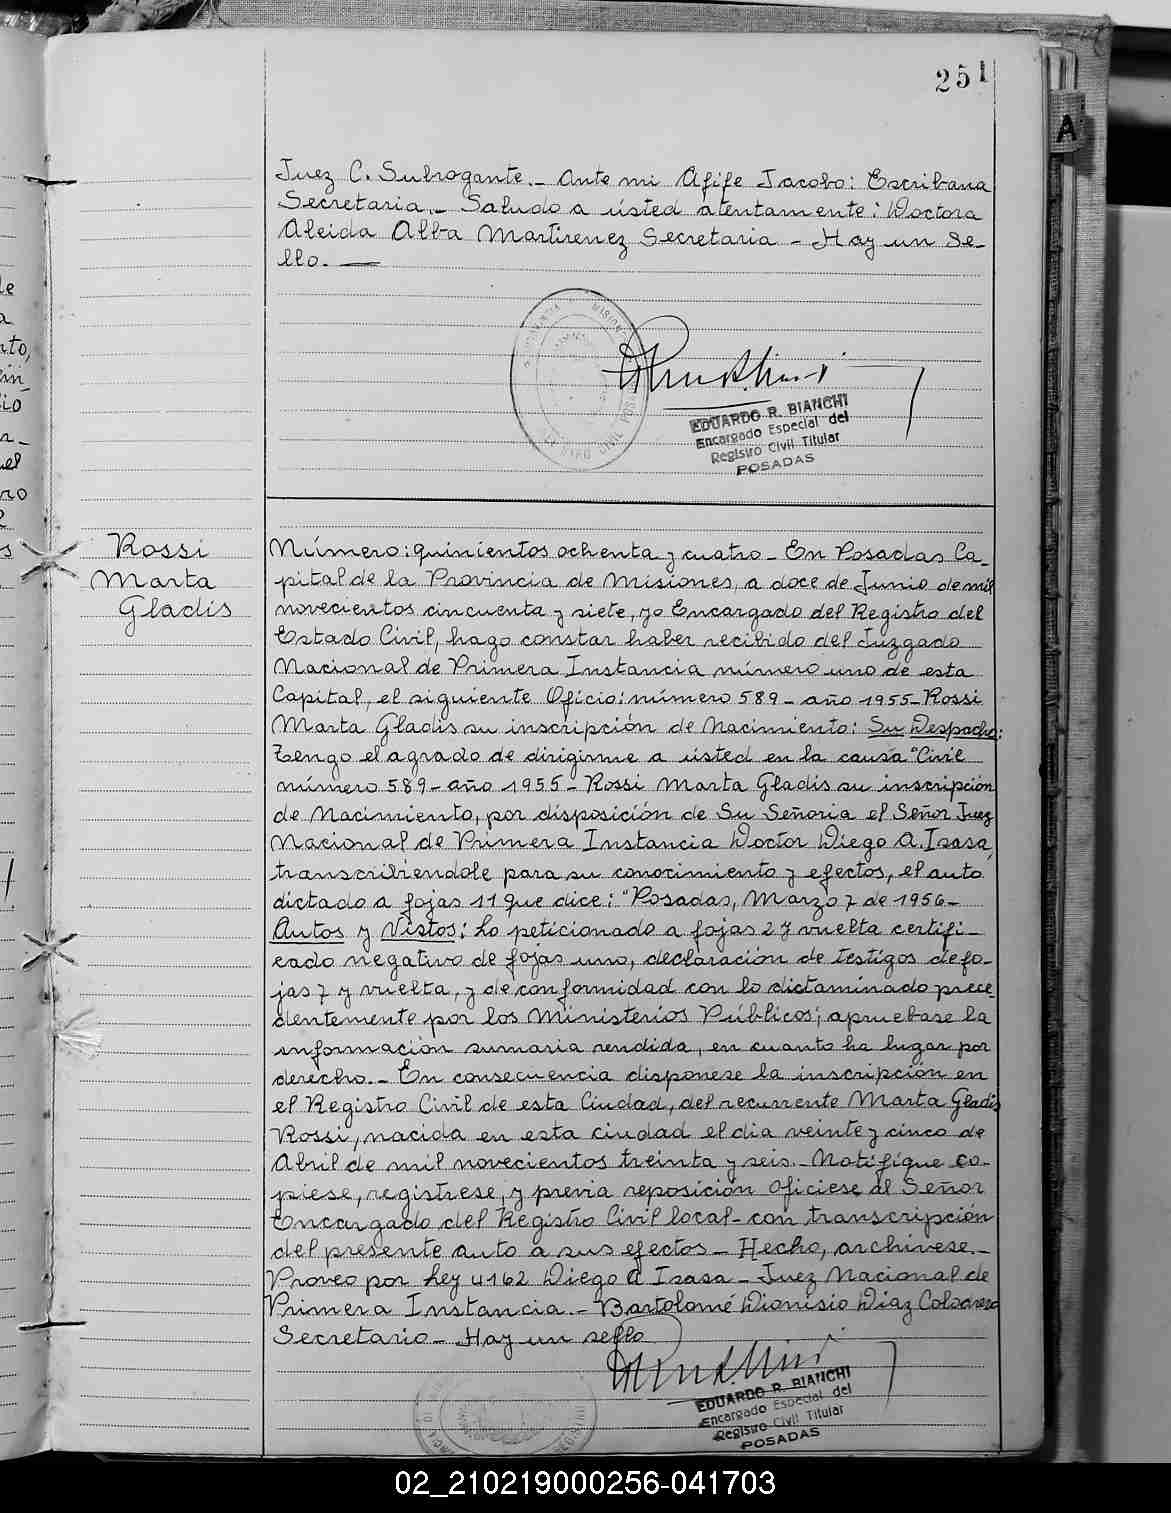 251
A
Juez C. Subrogante._ Ante mi Afife Jacobo: Escribana
Secretaria._ Saludo a usted atentamente: Doctora
Aleida Alba Martirenez Secretaria - Hay un se-
llo. —
EDUARDO R. BIANCHI
Encargado Especial del
Registro Civil Titular
POSADAS
Rossi
Marta
Gladis
Número: quinientos ochenta y cuatro - En Posadas Ca-
pital de la Provincia de Misiones, a doce de Junio de mil
novecientos cincuenta y siete, yo Encargado del Registro del
Estado Civil, hago constar haber recibido del Juzgado
Nacional de Primera Instancia número uno de esta
Capital, el siguiente Oficio: número 589 - año 1955 - Rossi
Marta Gladis su inscripción de Nacimiento: Su Despacho:
Tengo el agrado de dirigirme a usted en la causa "Civil
número 589 - año 1955 - Rossi Marta Gladis su inscripción
de Nacimiento, por disposición de Su Señoria el Señor Juez
Nacional de Primera Instancia Doctor Diego A. Isasa,
transcribiendole para su conocimiento y efectos, el auto
dictado a fojas 11 que dice: "Posadas, Marzo 7 de 1956 -
Autos y Vistos: Lo peticionado a fojas 2 y vuelta certifi-
cado negativo de fojas uno, declaración de testigos de fo-
jas 7 y vuelta, y de conformidad con lo dictaminado prece-
dentemente por los Ministerios Públicos; apruebase la
información sumaria rendida, en cuanto ha lugar por
derecho. - En consecuencia disponese la inscripción en
el Registro Civil de esta Ciudad, del recurrente Marta Gladis
Rossi, nacida en esta ciudad el dia veinte y cinco de
Abril de mil novecientos treinta y seis. - Notifique co-
piese, registrese, y previa reposición oficiese al Señor
Encargado del Registro Civil local - con transcripción
del presente auto a sus efectos - Hecho, archivese. -
Proveo por Ley 4162 Diego A Isasa - Juez Nacional de
Primera Instancia. - Bartolomé Dionisio Diaz
Secretario - Hay un sello
EDUARDO R. BIANCHI
Encargado Especial del
Registro Civil Titular
POSADAS
02_210219000256-041703